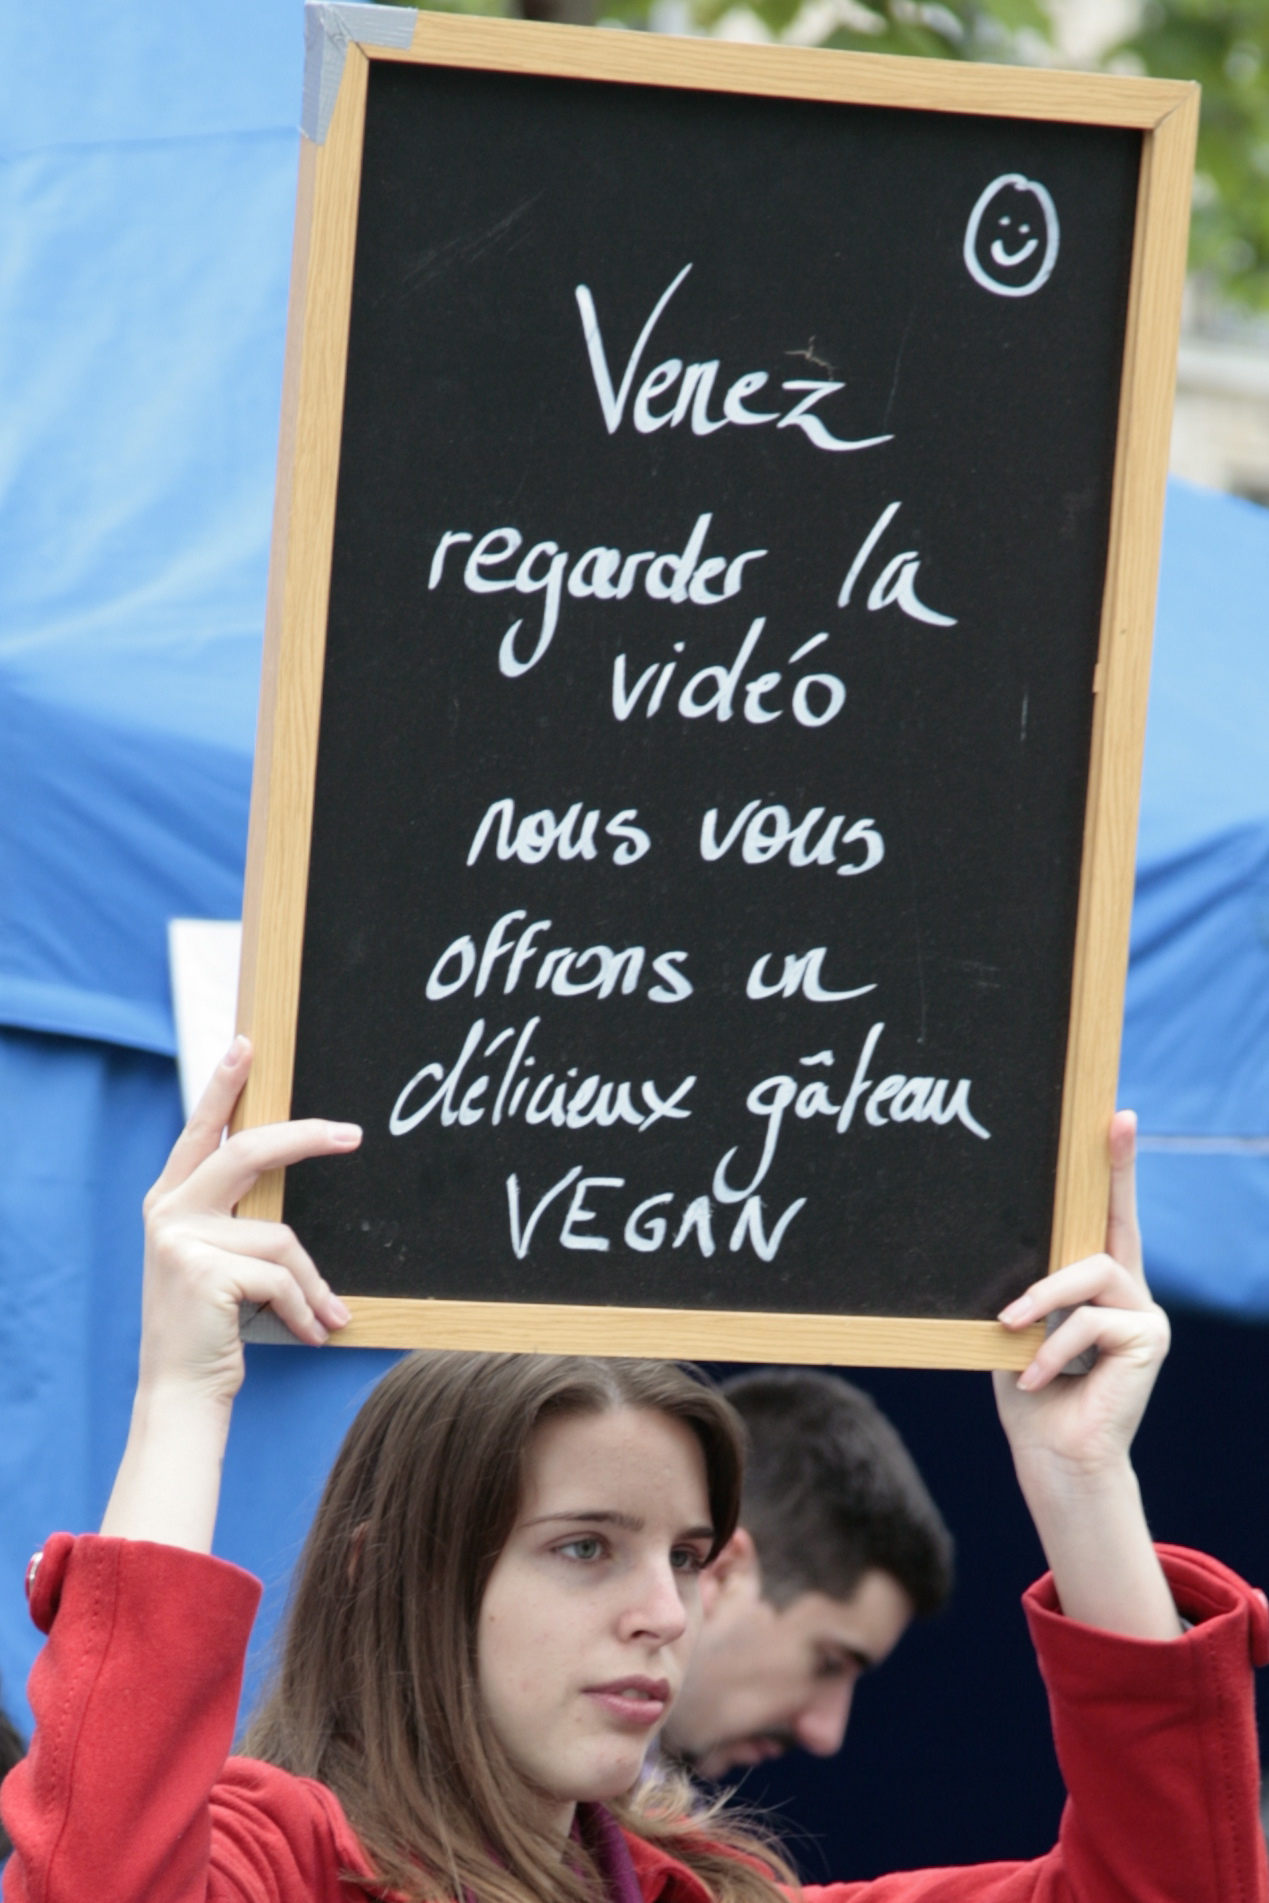 Venez
regarder la
vidéo
nous vous
offrons un
délicieux gâteau
VEGAN